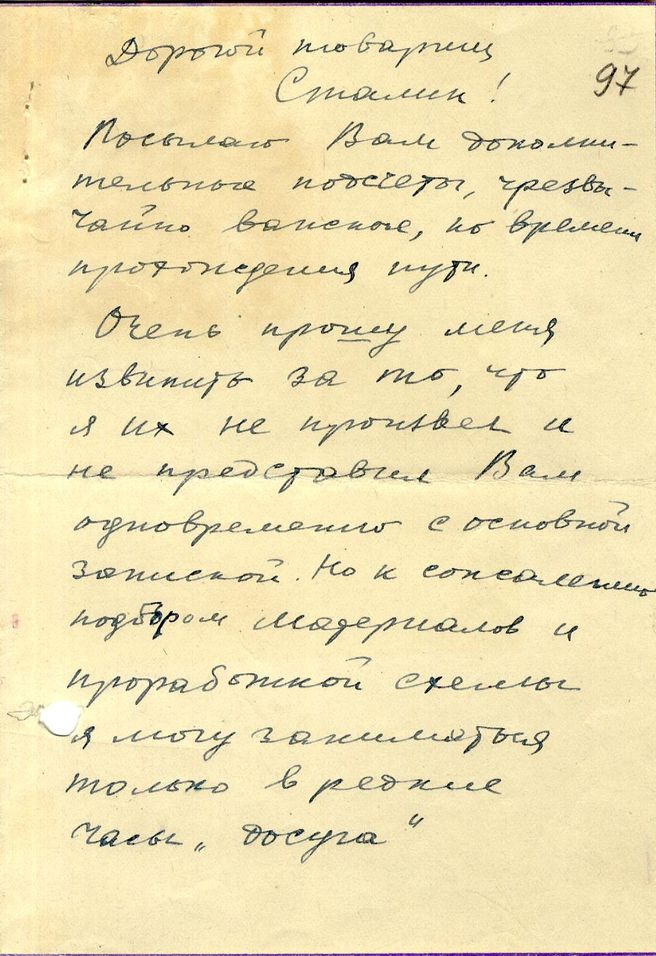 Дорогой товарищ
Сталин!
97
Посылаю Вам дополни-
тельные подсчеты, чрезвы-
чайно важные, по времени
прохождения пути.
Очень прошу меня
извинить за то, что
я их не произвел и
не представил Вам
одновременно с основной
запиской. Но к сожалению
подбором материалов и
проработкой схемы
я могу заниматься
только в редкие
часы „досуга"